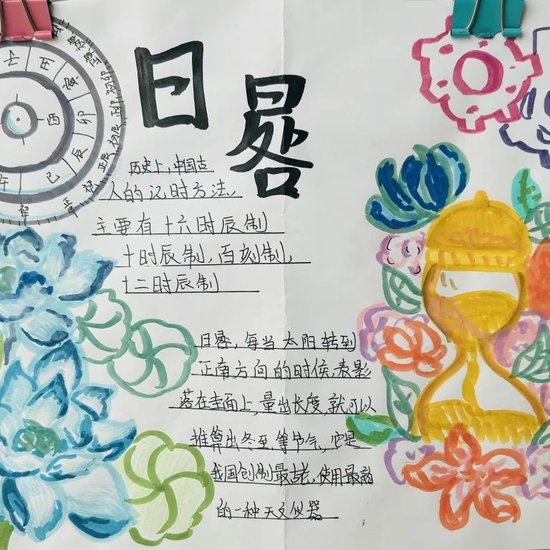 日晷
历史上,中国古
人的记时方法,
主要有十六时辰制
十时辰制,百刻制,
十二时辰制
日晷,每当太阳转到
正南方向的时候,表影
落在圭面上,量出长度,就可以
推算出冬至等节气,它是
我国创制最古老,使用最
的一种天文仪器
壬
丑
寅
卯
辰
巳
午
酉